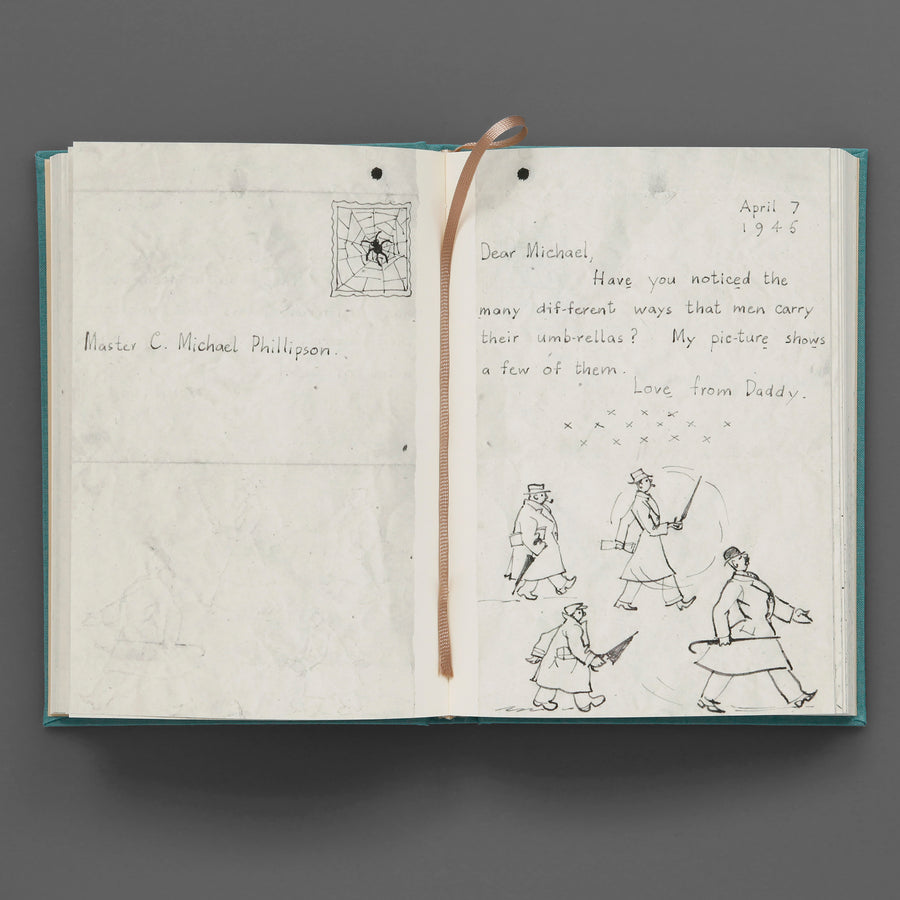 Master C. Michael Phillipson.
April 7
1945
Dear Michael,
Have you noticed the
many dif-ferent ways that men carry
their umb-rellas? My pic-ture shows
a few of them.
Love from Daddy.
x x x
x x x x x x
x x x x x